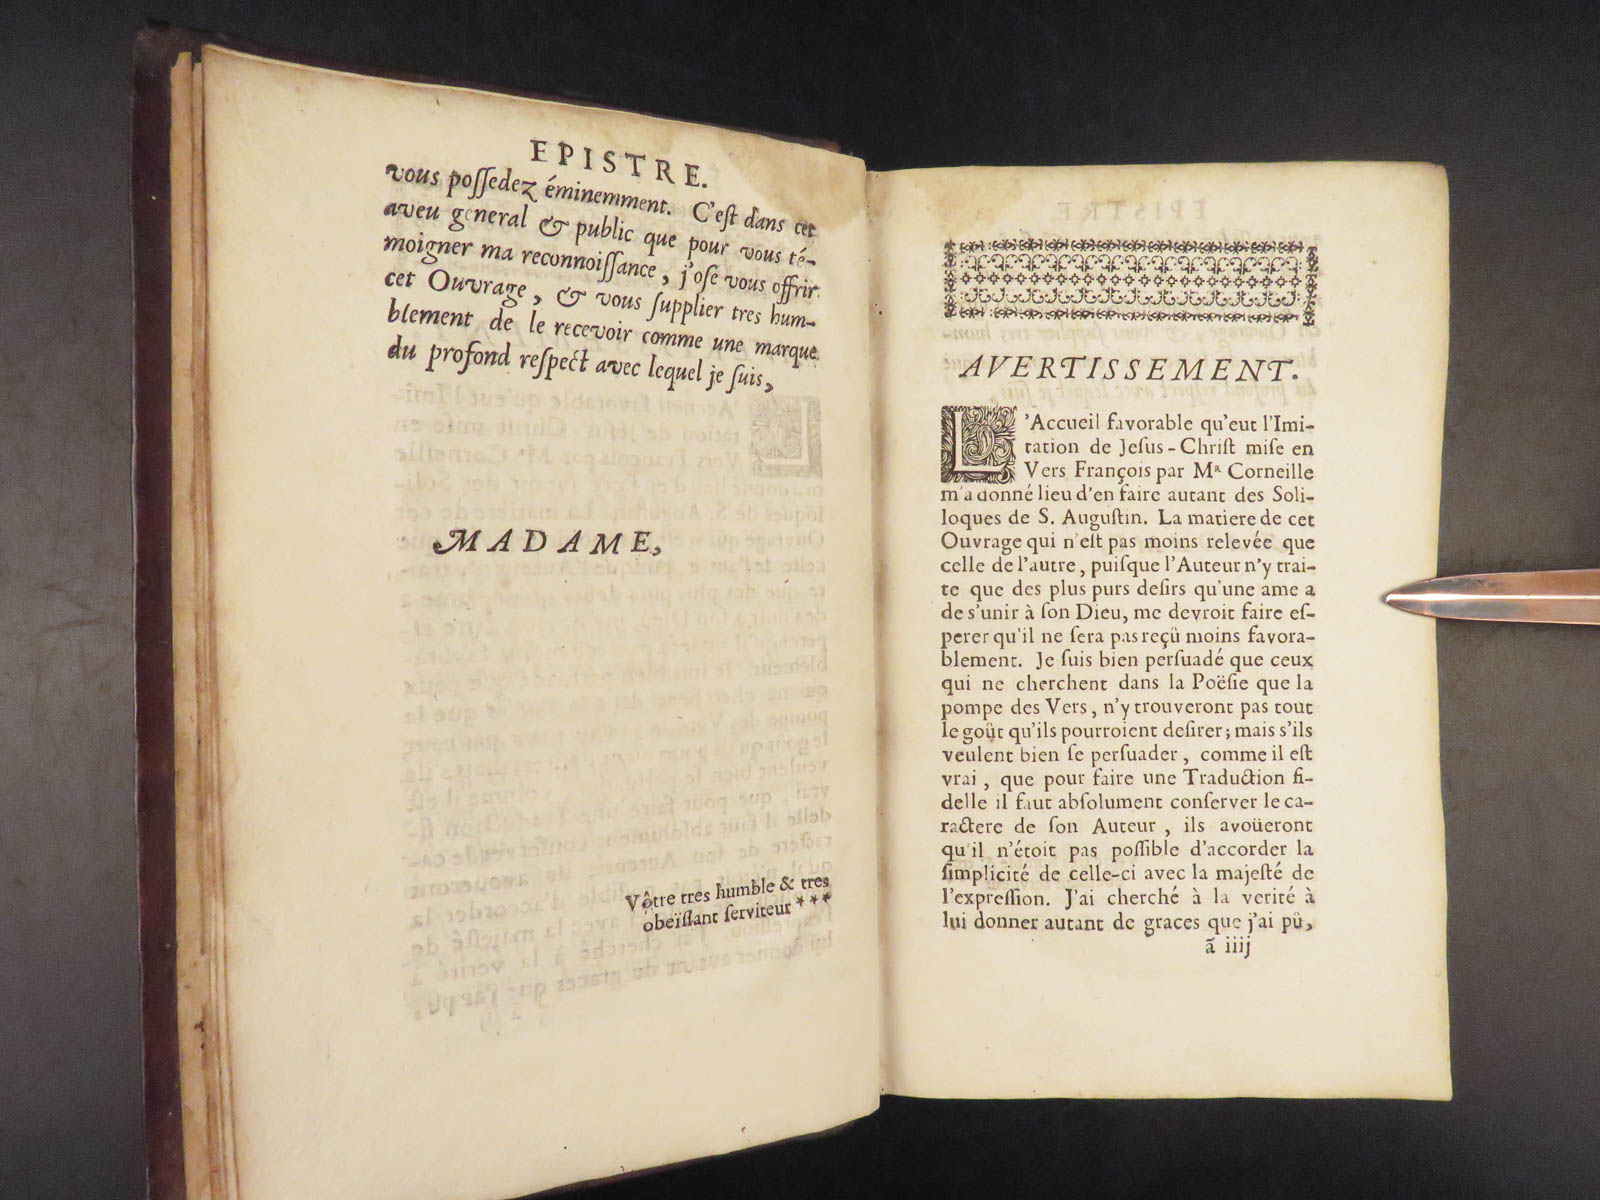 EPISTRE.
vous possedez éminemment. C'est dans cet
aveu general & public que pour vous té-
moigner ma reconnoissance, j'ose vous offrir
cet Ouvrage, & vous supplier tres hum-
blement de le recevoir comme une marque
du profond respect avec lequel je suis,
MADAME,
Vôtre tres humble & tres
obeïssant serviteur ***
AVERTISSEMENT.
L'Accueil favorable qu'eut l'Imi-
tation de Jesus-Christ mise en
Vers François par Mr Corneille
m'a donné lieu d'en faire autant des Soli-
loques de S. Augustin. La matiere de cet
Ouvrage qui n'est pas moins relevée que
celle de l'autre, puisque l'Auteur n'y trai-
te que des plus purs desirs qu'une ame a
de s'unir à son Dieu, me devroit faire es-
perer qu'il ne sera pas reçû moins favora-
blement. Je suis bien persuadé que ceux
qui ne cherchent dans la Poësie que la
pompe des Vers, n'y trouveront pas tout
le goût qu'ils pourroient desirer; mais s'ils
veulent bien se persuader, comme il est
vrai, que pour faire une Traduction fi-
delle il faut absolument conserver le ca-
ractere de son Auteur, ils avoüeront
qu'il n'étoit pas possible d'accorder la
simplicité de celle-ci avec la majesté de
l'expression. J'ai cherché à la verité à
lui donner autant de graces que j'ai pû,
ã iiij